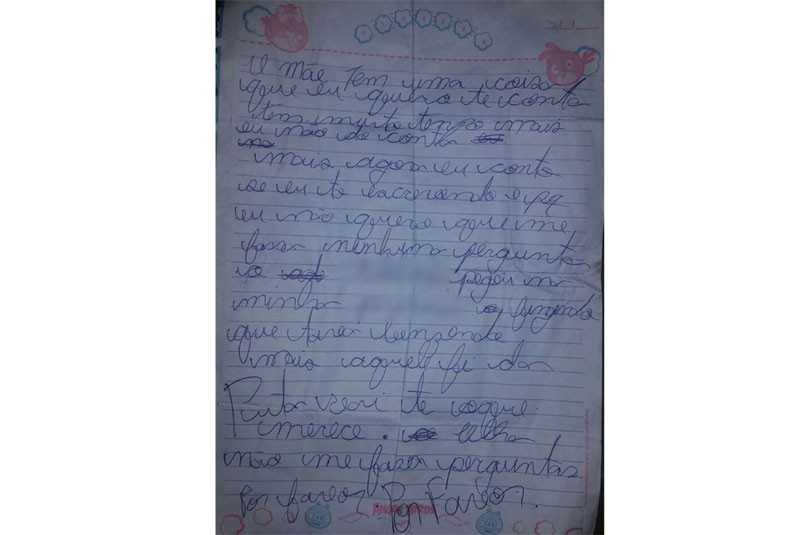 U mãe tem uma coisa
que eu quero te conta
tem muito tempo mais
eu não do conta
mais agora eu conto
se eu to escrevendo e pq
eu não quero que me
fasa nenhuma pergunta
pegou na
minha fingindo
que tava benzendo
mais aquele fi da
Puta vai te oque
merece.
não me fasa perguntas
Por favor Por Favor.
ANGRY BIRDS